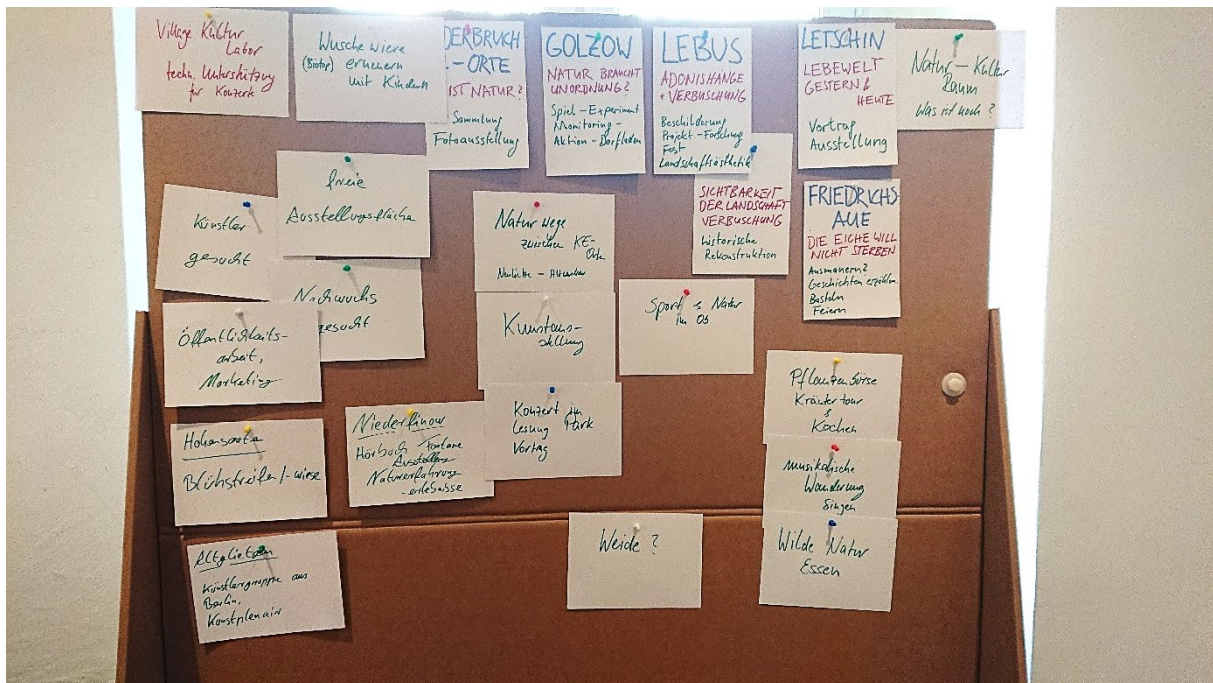 Village Kultur
Labor
techn. Unterstützung
für Konzerte
Wusche wiere
(Biotop) erneuern
mit Kindern
DERBRUCH
- ORTE
IST NATUR?
Sammlung
Fotoausstellung
GOLZOW
NATUR BRAUCHT
UNORDNUNG?
Spiel - Experiment
Monitoring -
Aktion - Dorfladen
LEBUS
ADONISHÄNGE
+ VERBUSCHUNG
Beschilderung
Projekt - Forschung
Fest
Landschaftsästhetik
LETSCHIN
LEBEWELT
GESTERN &
HEUTE
Vortrag
Ausstellung
Natur - Kultur
Raum
Was ist noch?
freie
Ausstellungsfläche
Künstler
gesucht
Nachwuchs
gesucht
Natur wege
zwischen KE-
Orte
SICHTBARKEIT
DER LANDSCHAFT
VERBUSCHUNG
historische
Rekonstruktion
FRIEDRICHS-
AUE
DIE EICHE WILL
NICHT STERBEN
Ausmauern?
Geschichten erzählen.
Basteln
Feiern
Öffentlichkeits-
arbeit,
Marketing
Kunstaus-
stellung
Sport & Natur
im OB
Hohensaaten
Blühstreifen/-wiese
Niederfinow
Hörbuch Fontane
Ausstellung
Naturerfahrungs
-erlebnisse
Konzert im
Lesung Park
Vortrag
Pflanzenbörse
Kräutertour
&
Kochen
musikalische
Wanderung
Singen
Altglietzen
Künstlergruppe aus
Berlin,
Kunstplenair
Weide?
Wilde Natur
Essen